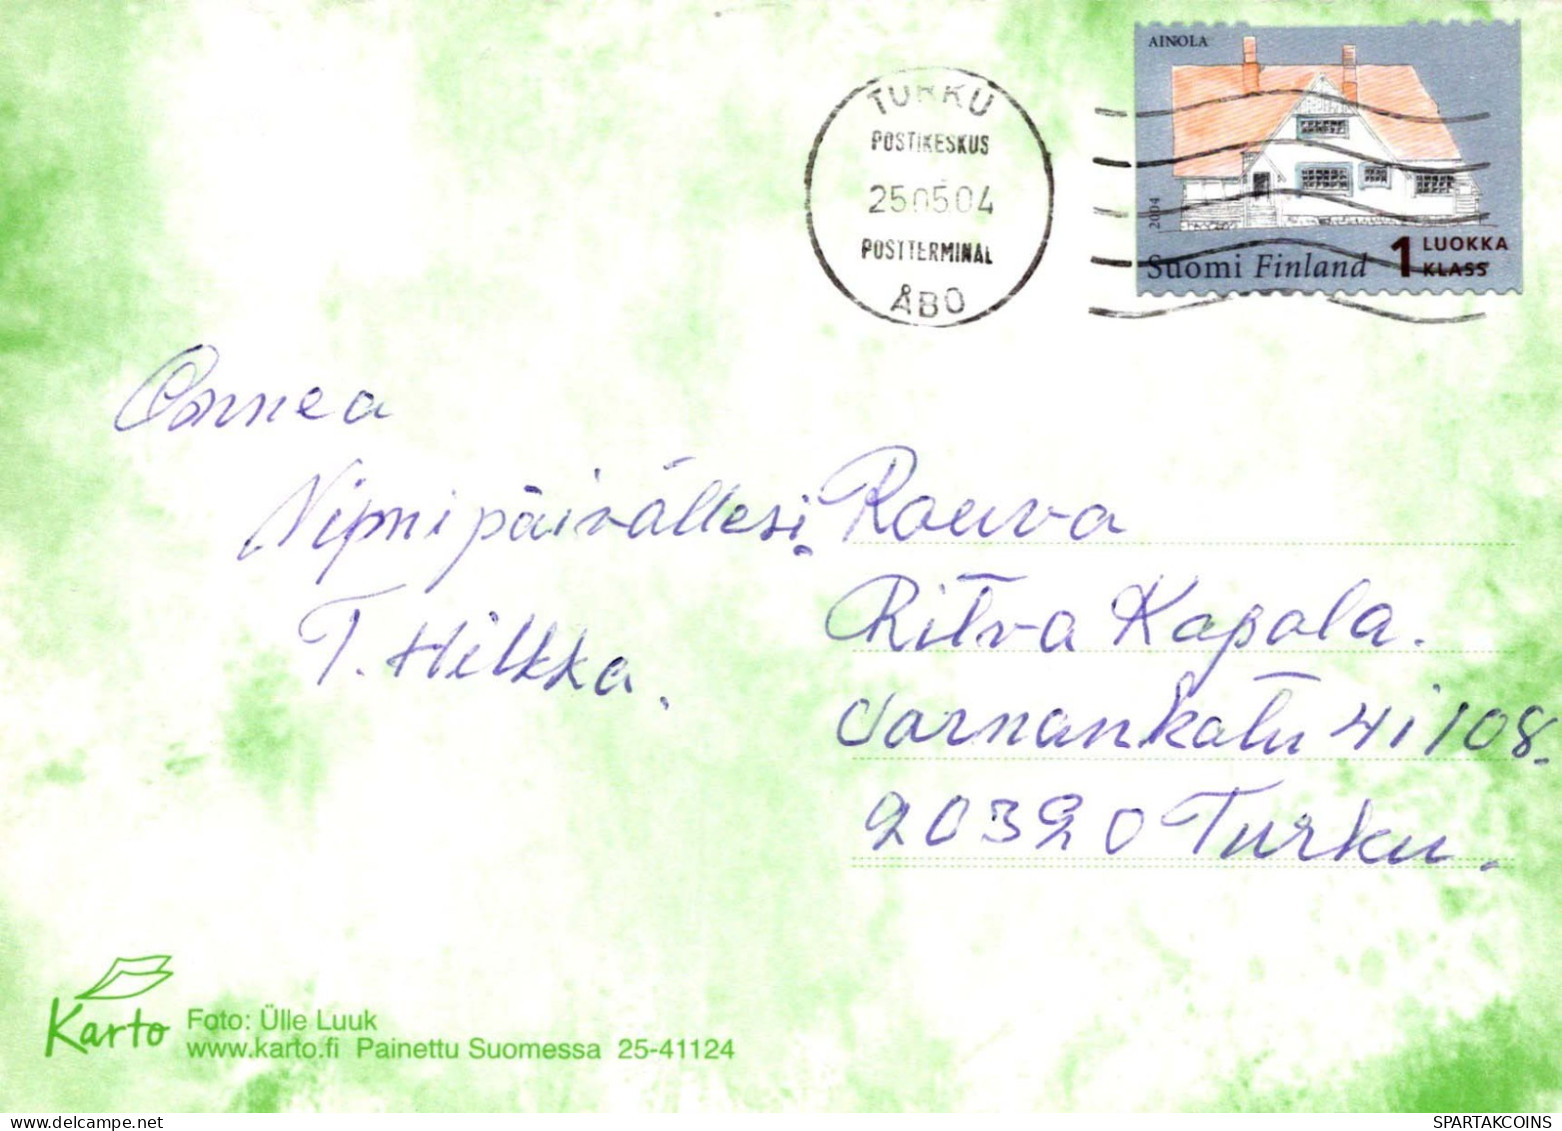 AINOLA
2004
Suomi Finland 1 LUOKKA
KLASS
TURKU
POSTIKESKUS
25.05.04
POSTTERMINAL
ÅBO
Onnea
Nipnipäivällesi.
T. Hilkka.
Rouva
Ritva Kapala.
Varnankatu 41 108.
20320 Turku.
Karto
Foto: Ülle Luuk
www.karto.fi Painettu Suomessa 25-41124
SPARTAKCOINS